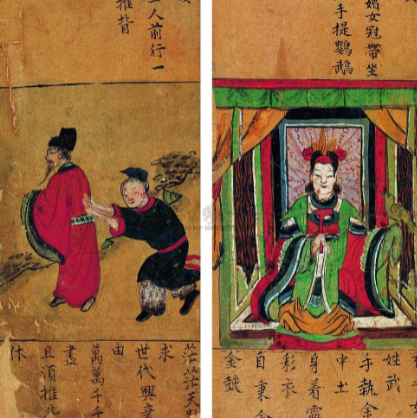 一人前行一
推背
茫茫天
求
世代興
由
萬萬千千
盡
且須推
休
婦女冠帶坐
手提鸚鵡
姓武
手執金
中土
身着
彩衣
自秉
金鼓